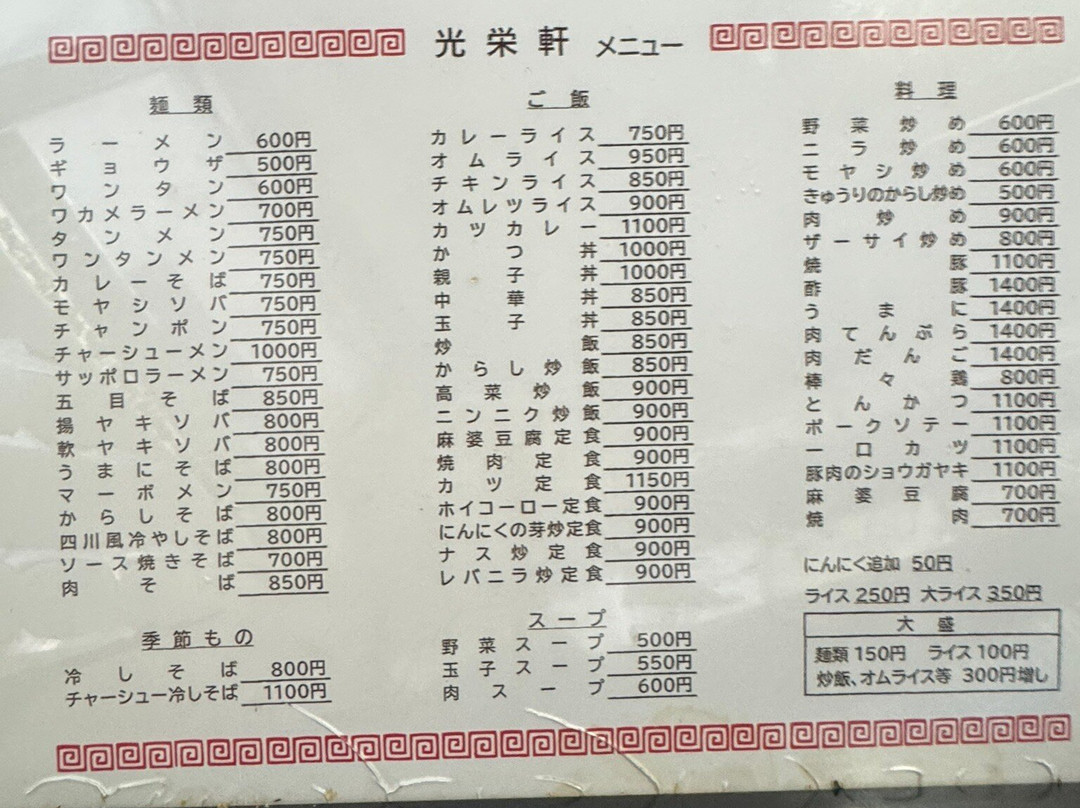 光栄軒 メニュー
麺類
ラーメン 600円
ギョウザ 500円
ワンタン 600円
ワカメラーメン 700円
タンメン 750円
ワンタンメン 750円
カレーそば 750円
モヤシソバ 750円
チャンポン 750円
チャーシューメン 1000円
サッポロラーメン 750円
五目そば 850円
揚ヤキソバ 800円
軟ヤキソバ 800円
うまにそば 800円
マーボメン 750円
からしそば 800円
四川風冷やしそば 800円
ソース焼きそば 700円
肉そば 850円
季節もの
冷しそば 800円
チャーシュー冷しそば 1100円
ご飯
カレーライス 750円
オムライス 950円
チキンライス 850円
オムレツライス 900円
カツカレー 1100円
かつ丼 1000円
親子丼 1000円
中華丼 850円
玉子丼 850円
炒飯 850円
からし炒飯 850円
高菜炒飯 900円
ニンニク炒飯 900円
麻婆豆腐定食 900円
焼肉定食 900円
カツ定食 1150円
ホイコーロー定食 900円
にんにくの芽炒定食 900円
ナス炒定食 900円
レバニラ炒定食 900円
スープ
野菜スープ 500円
玉子スープ 550円
肉スープ 600円
料理
野菜炒め 600円
ニラ炒め 600円
モヤシ炒め 600円
きゅうりのからし炒め 500円
肉炒め 900円
ザーサイ炒め 800円
焼豚 1100円
酢豚 1400円
うまに 1400円
肉てんぷら 1400円
肉だんご 1400円
棒々鶏 800円
とんかつ 1100円
ポークソテー 1100円
一口カツ 1100円
豚肉のショウガヤキ 1100円
麻婆豆腐 700円
焼肉 700円
にんにく追加 50円
ライス 250円 大ライス 350円
大盛
麺類 150円 ライス 100円
炒飯、オムライス等 300円増し